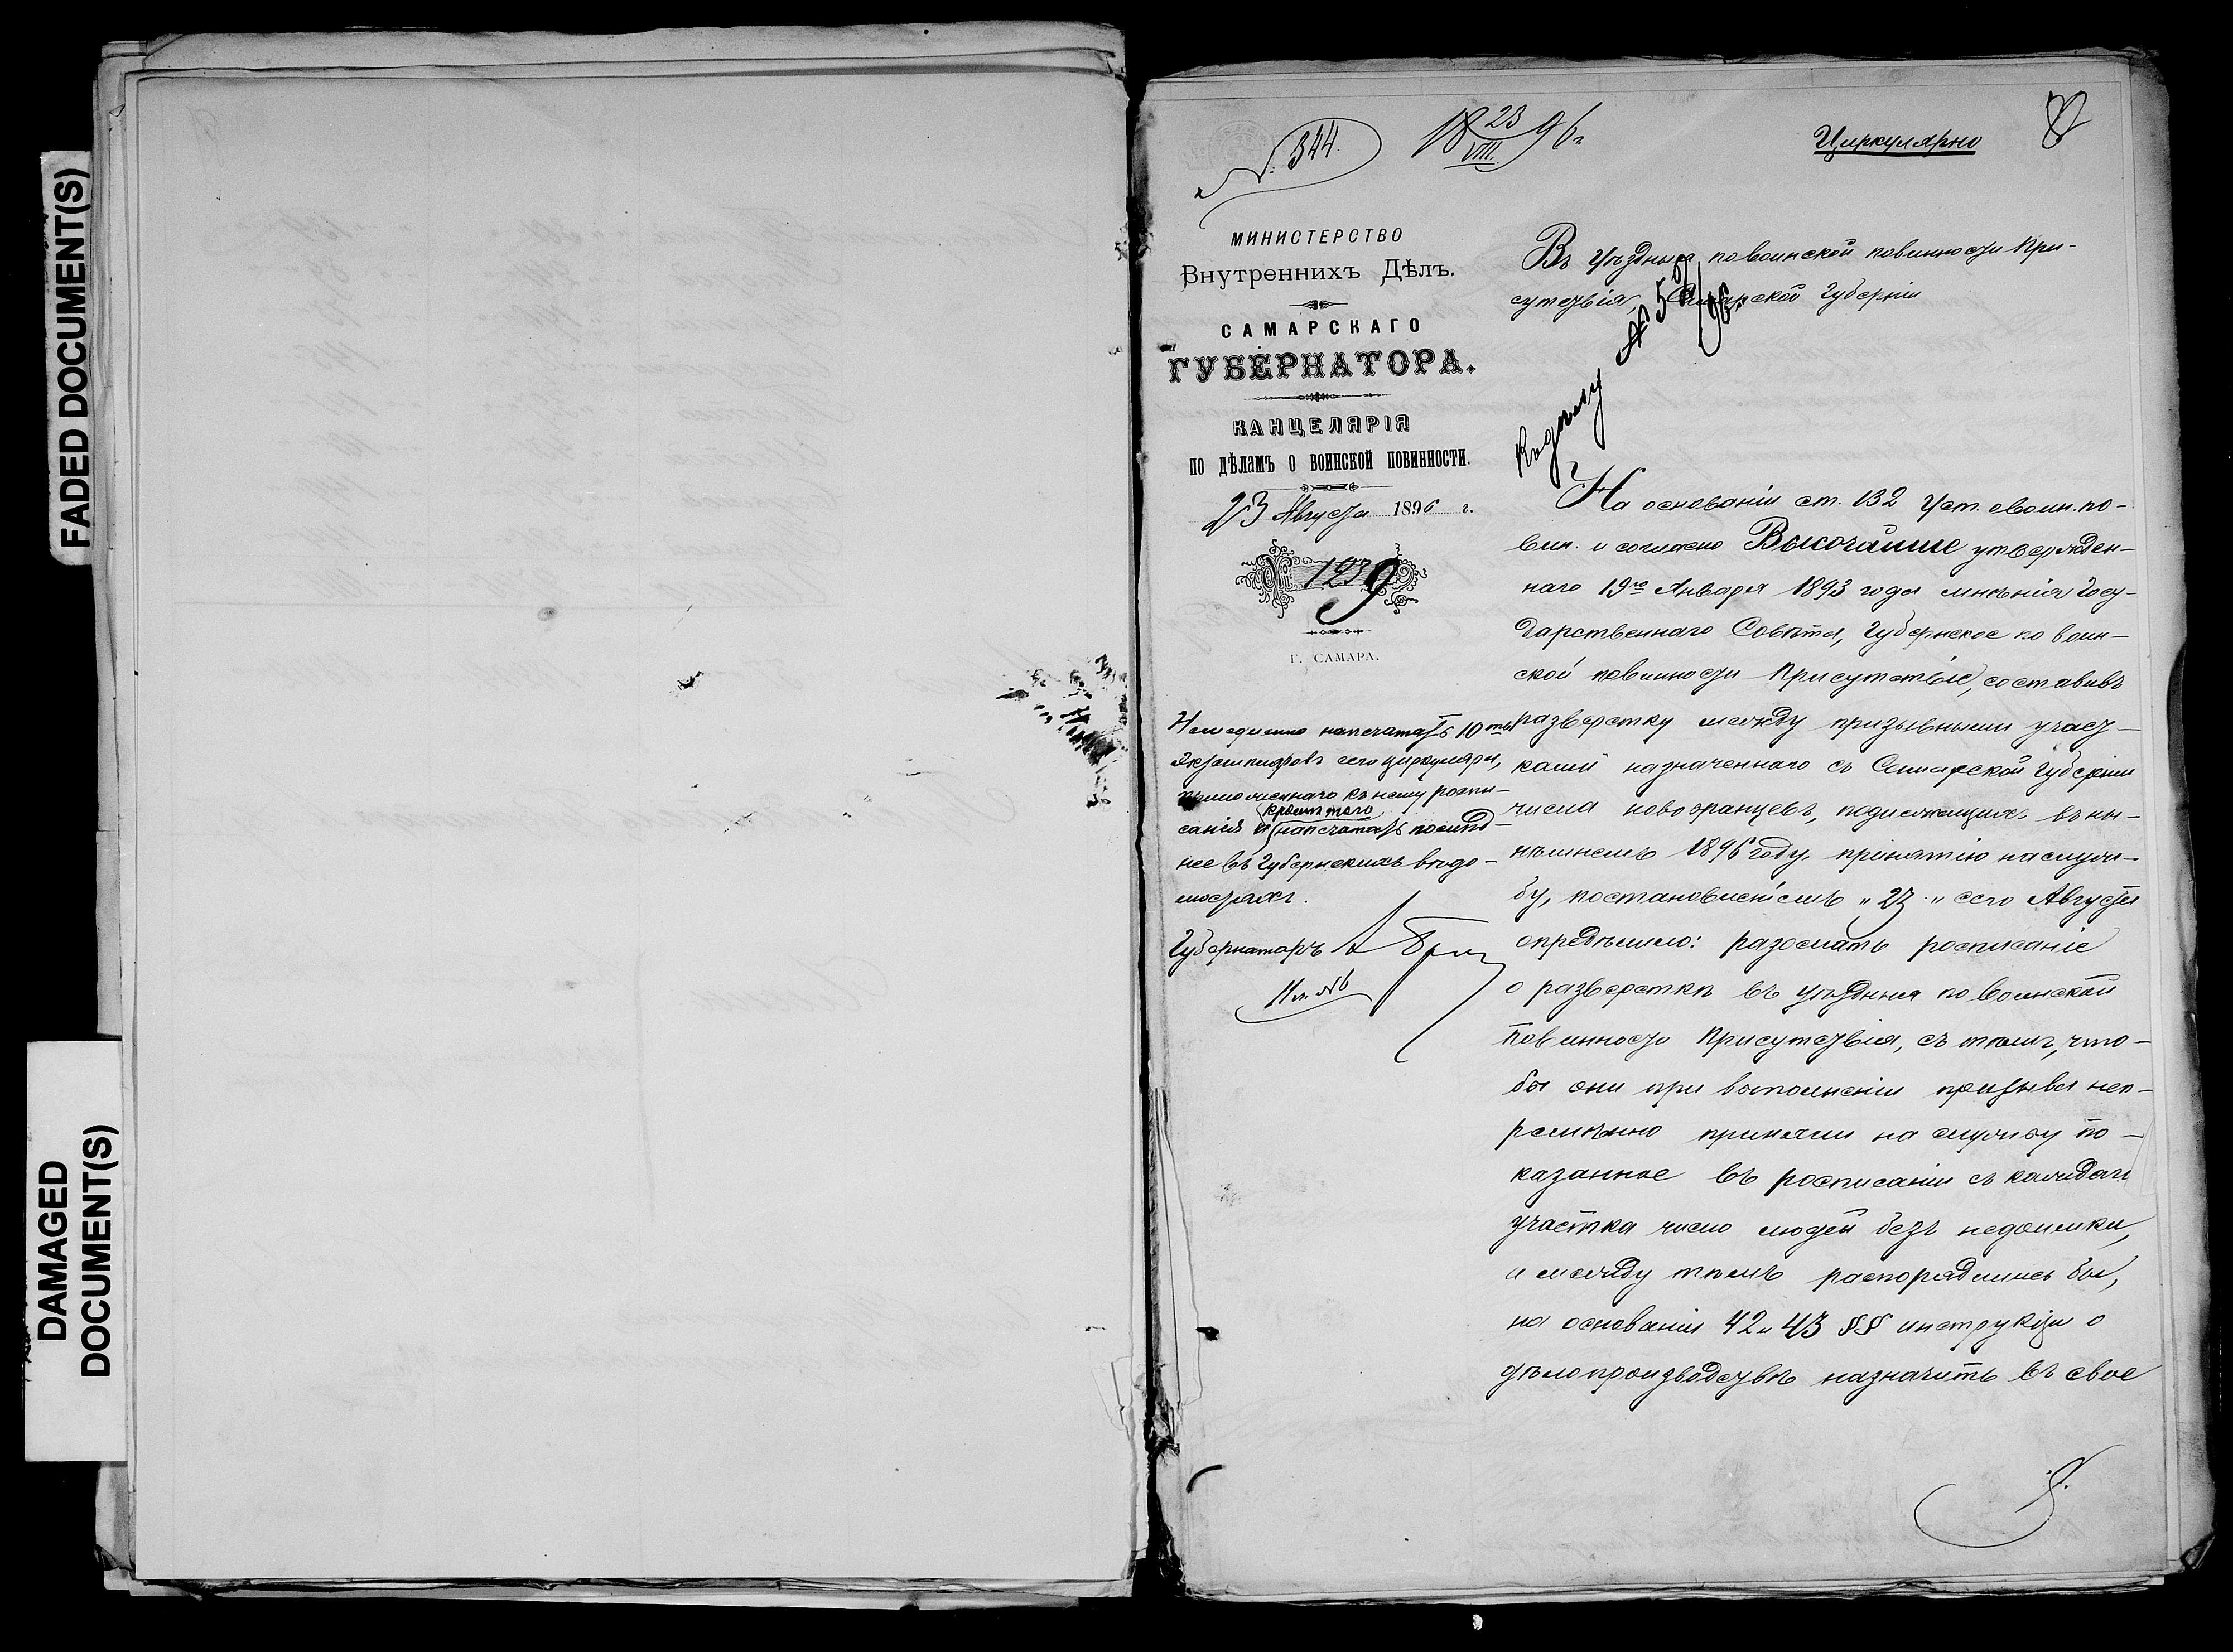 FADED DOCUMENT(S)
DAMAGED
DOCUMENT(S)
№ 344.
18 23/VIII 96 г.
Циркулярно
8
МИНИСТЕРСТВО
Внутреннихъ Дѣлъ.
САМАРСКАГО
ГУБЕРНАТОРА.
КАНЦЕЛЯРІЯ
ПО ДѢЛАМЪ О ВОИНСКОЙ ПОВИННОСТИ.
23 Августа 1896 г.
№ 1239
Г. САМАРА.
Немедленно напечатать 10ть
экземпляровъ сего циркуляра,
къ нему роспи-
санія и кромѣ того напечатать послѣд-
нее въ Губернскихъ вѣдо-
мостяхъ.
Губернаторъ А Бря
Въ Уѣздныя по воинской повинности При-
сутствія, Самарской Губерніи
Къ дѣлу № 58/96.
На основаніи ст. 132 Уст. о воин. по-
вин. и согласно Высочайше утвержден-
наго 19го Января 1893 года мнѣнія Госу-
дарственнаго Совѣта, Губернское по воин-
ской повинности Присутствіе, составивъ
разверстку между призывными участ-
ками назначеннаго съ Самарской Губерніи
числа новобранцевъ, подлежащихъ въ ны-
нѣшнемъ 1896 году, принятію на служ-
бу, постановленіемъ „23“ сего Августа
опредѣлило: разослать росписаніе
о разверсткѣ въ уѣздныя по воинской
повинности Присутствія, съ тѣмъ, что-
бы они при выполненіи призыва неп-
ремѣнно приняли на службу по-
казанное въ росписаніи съ каждаго
участка число людей безъ недоимки,
и между тѣмъ распорядились бы,
на основаніи 42 и 43 §§ инструкціи о
дѣлопроизводствѣ назначить въ свое